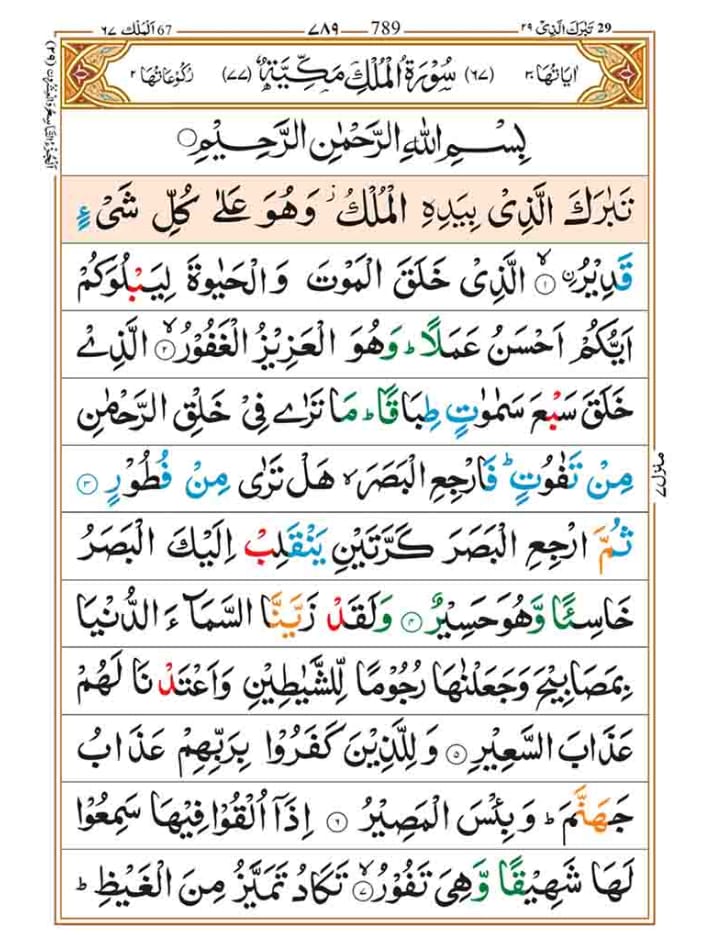 29 تَبٰرَكَ الَّذِىْ ٢٩
789 ٧٨٩
67 اَلْمُلْك ٦٧
اٰيَاتُهَا ٣٠ (٦٧) سُوْرَةُ الْمُلْكِ مَكِّيَّةٌ (٧٧) رُكُوْعَاتُهَا ٢
بِسْمِ اللّٰهِ الرَّحْمٰنِ الرَّحِيْمِ
تَبٰرَكَ الَّذِىْ بِيَدِهِ الْمُلْكُ ز وَهُوَ عَلٰى كُلِّ شَىْءٍ
قَدِيْرُۨ ۙ ١ الَّذِىْ خَلَقَ الْمَوْتَ وَالْحَيٰوةَ لِيَبْلُوَكُمْ
اَيُّكُمْ اَحْسَنُ عَمَلًا ؕ وَهُوَ الْعَزِيْزُ الْغَفُوْرُ ۙ ٢ الَّذِىْ
خَلَقَ سَبْعَ سَمٰوٰتٍ طِبَاقًا ؕ مَا تَرٰى فِىْ خَلْقِ الرَّحْمٰنِ
مِنْ تَفٰوُتٍ ؕ فَارْجِعِ الْبَصَرَ ۙ هَلْ تَرٰى مِنْ فُطُوْرٍ ٣
ثُمَّ ارْجِعِ الْبَصَرَ كَرَّتَيْنِ يَنْقَلِبْ اِلَيْكَ الْبَصَرُ
خَاسِئًا وَّهُوَ حَسِيْرٌ ٤ وَلَقَدْ زَيَّنَّا السَّمَآءَ الدُّنْيَا
بِمَصَابِيْحَ وَجَعَلْنٰهَا رُجُوْمًا لِّلشَّيٰطِيْنِ وَاَعْتَدْنَا لَهُمْ
عَذَابَ السَّعِيْرِ ٥ وَلِلَّذِيْنَ كَفَرُوْا بِرَبِّهِمْ عَذَابُ
جَهَنَّمَ ؕ وَبِئْسَ الْمَصِيْرُ ٦ اِذَآ اُلْقُوْا فِيْهَا سَمِعُوْا
لَهَا شَهِيْقًا وَّهِىَ تَفُوْرُ ۙ ٧ تَكَادُ تَمَيَّزُ مِنَ الْغَيْظِ ؕ
منزل ٧